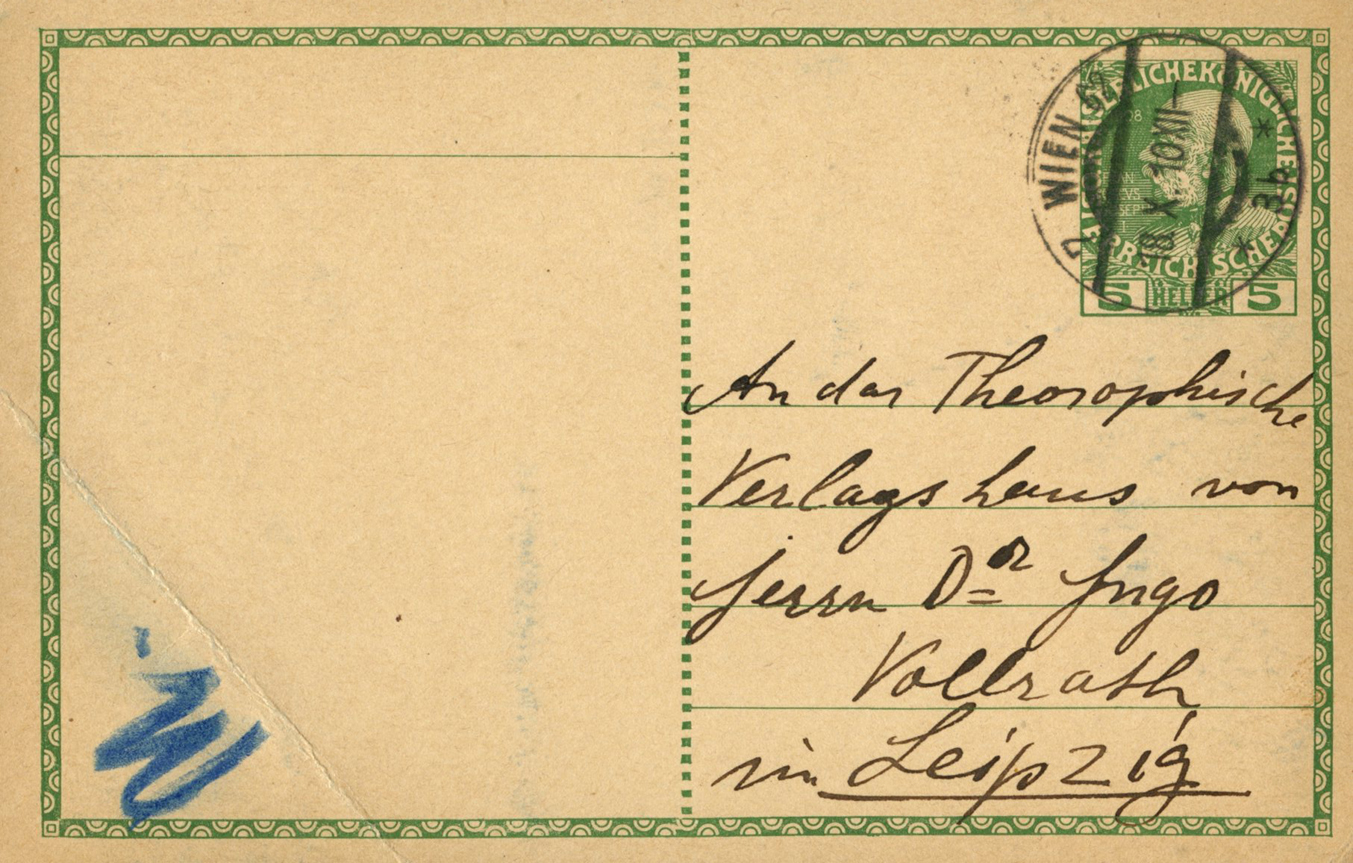 KAISERLICHE KÖNIGLICHE ÖSTERREICHISCHE
5 HELLER 5
WIEN 62
18.X.10 XII-
* 3b *
An das Theosophische
Verlagshaus von
Herrn Dr Hugo
Vollrath
in Leipzig